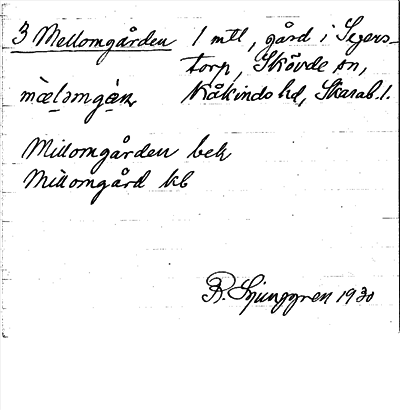 3 Mellomgården 1 mtl, gård i Segers-
torp, Skövde sn,
mæ̀l̥əmgɑ̀n Kåkinds hd, Skarab. l.
Millomgården bek
Millomgård kb
R. Ljunggren 1930